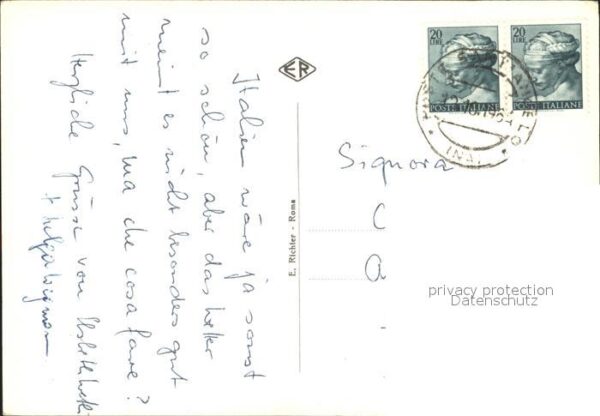 Italien wäre ja sonst
so schön, aber das Wetter
meint es nicht besonders gut
mit uns, ma che cosa fare?
Herzliche Grüsse von
+ Helga
ER
E. Richter - Roma
20
LIRE
POSTE ITALIANE
20
LIRE
POSTE ITALIANE
Signora
C
a
privacy protection
Datenschutz